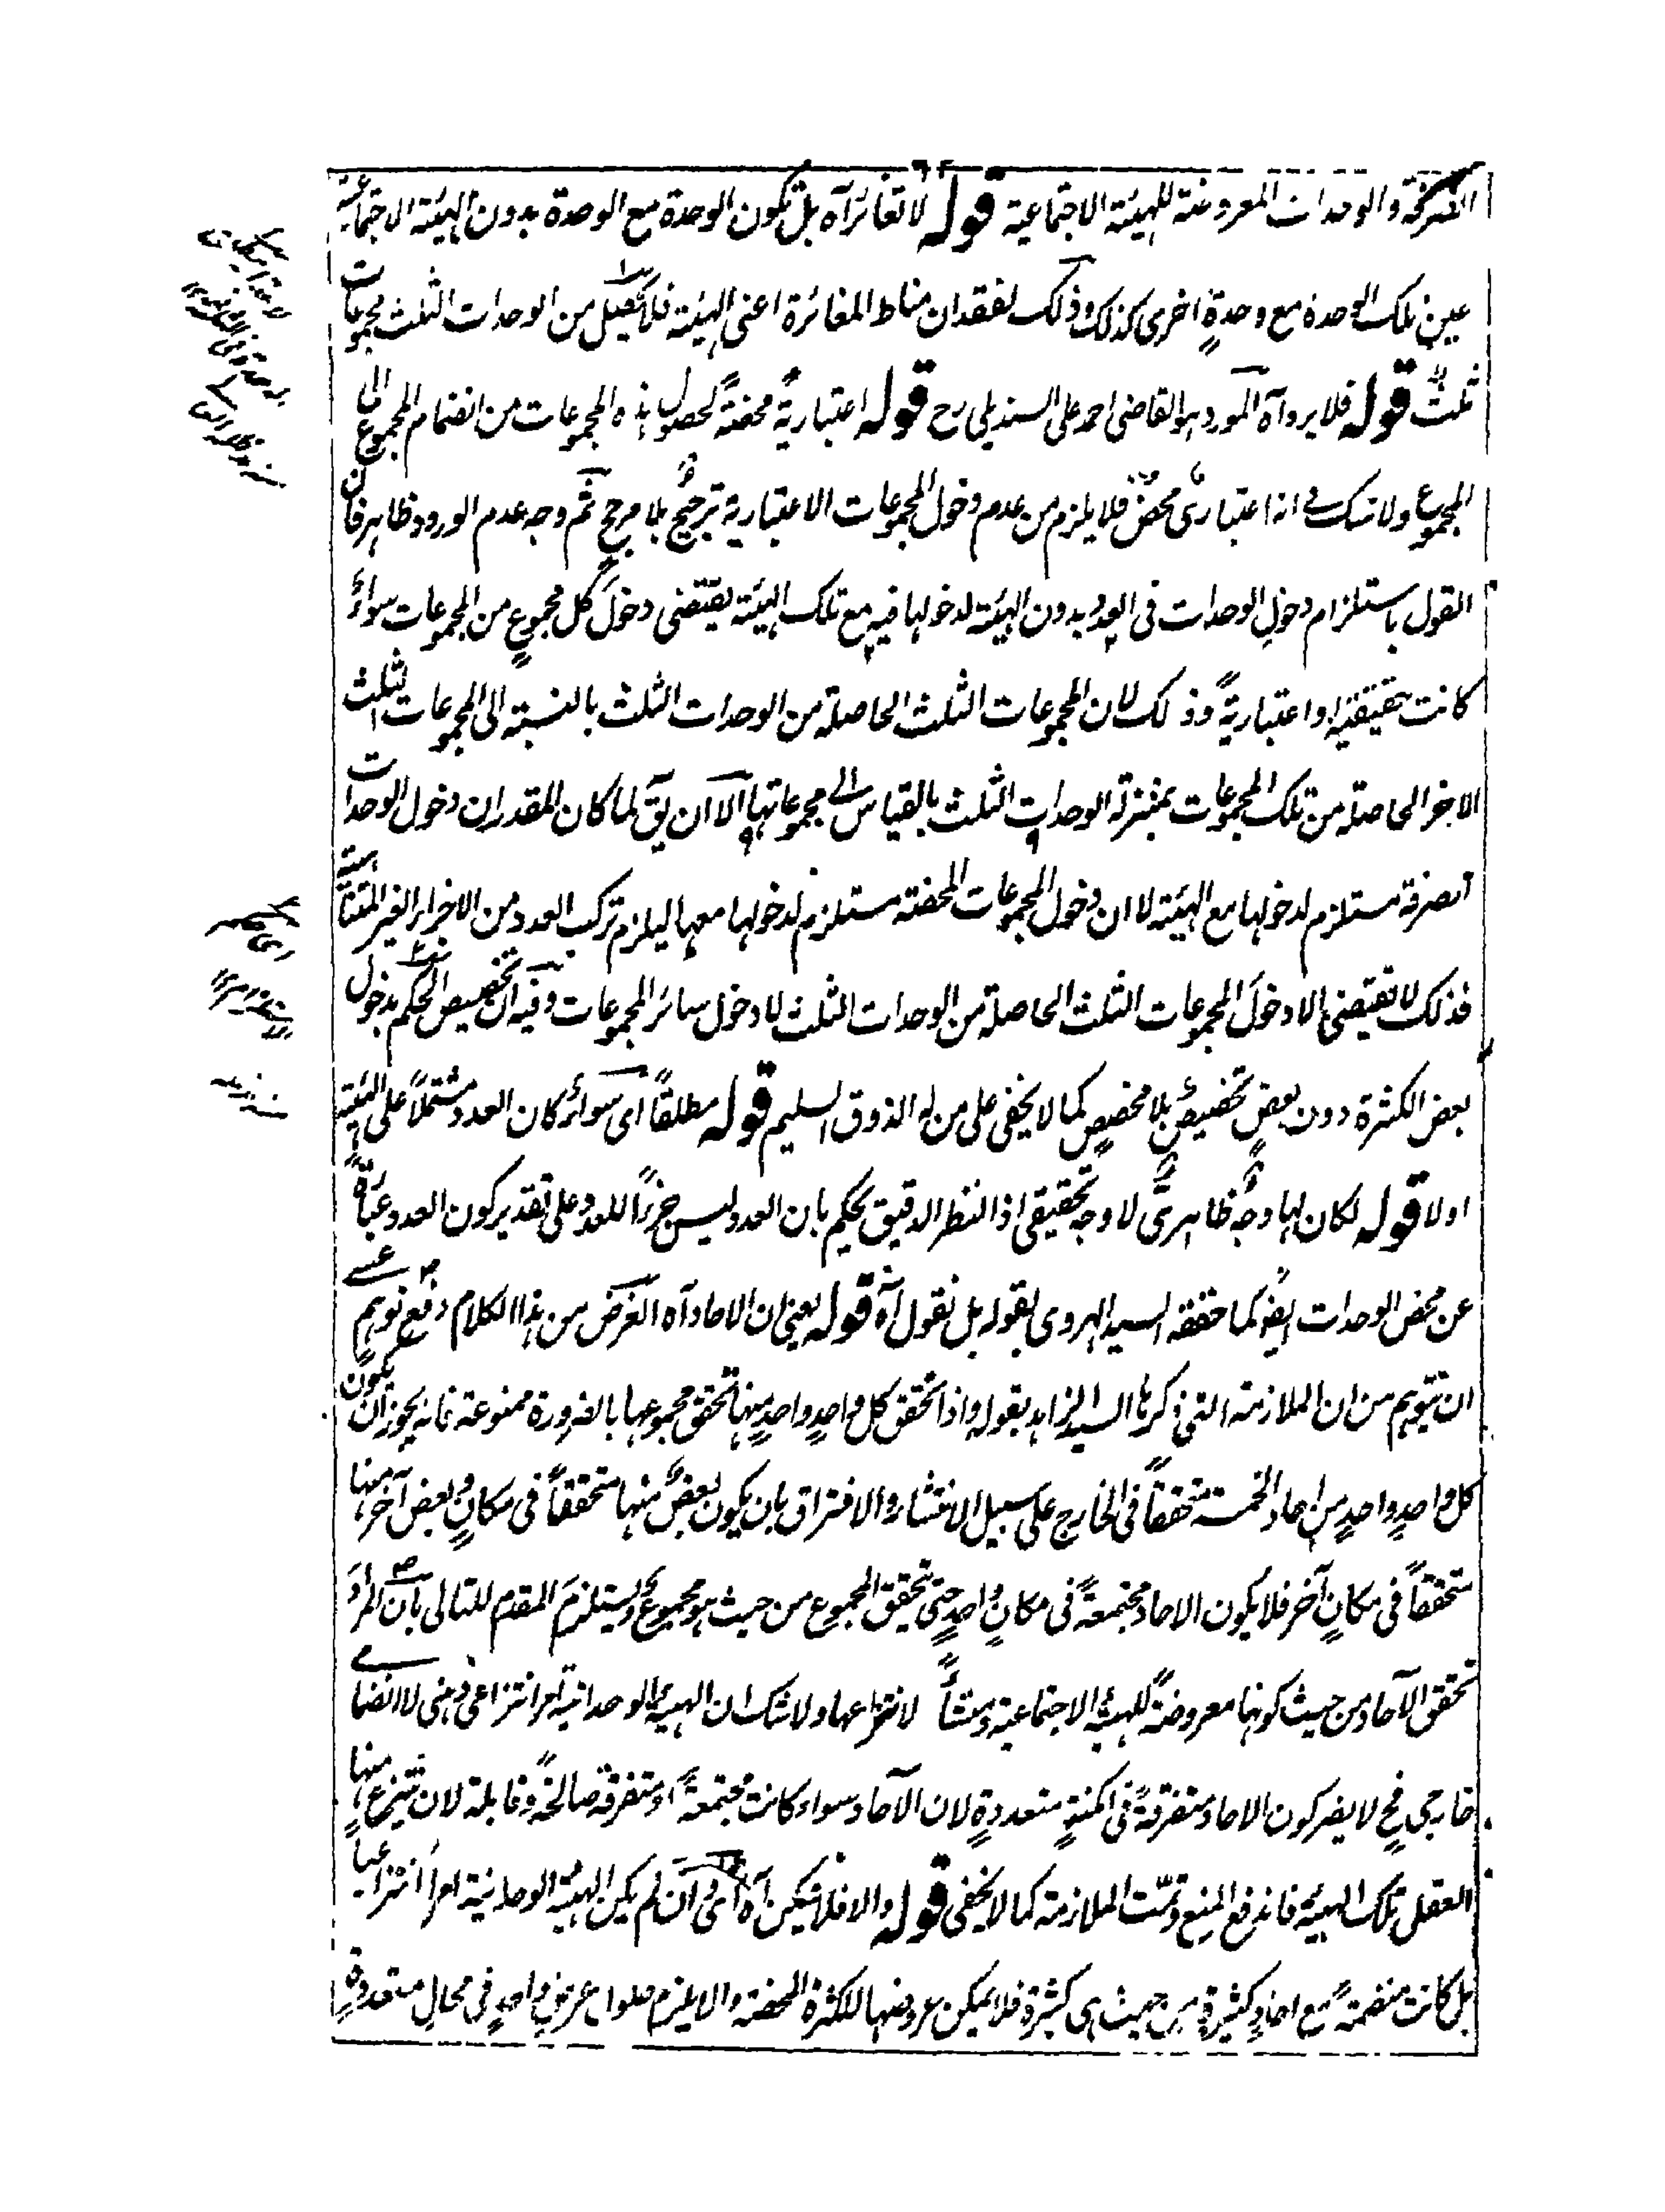 الصرفة والوحدات المعروضة للهيئة الاجتماعية قوله لا تغائر آه بل تكون الوحدة مع الوحدة بدون الهيئة الاجتماعية
عين تلك الوحدة مع وحدةٍ اخرى كذلك وذلك لفقدان مناط المغائرة اعنى الهيئة فلا يحصل من الوحدات الثلث مجموعات
ثلثٌ قوله فلا يرد آه المورد هو القاضى احمد على السنديلى رح قوله اعتباريةٌ محضةٌ لحصول هذه المجموعات من انضمام المجموع الى
المجموع ولا شك فى انه اعتبارىٌ محضٌ فلا يلزم من عدم دخول المجموعات الاعتبارية ترجيحٌ بلا مرجحٍ ثم وجه عدم الورود ظاهر فان
القول باستلزام دخول الوحدات فى العدد بدون الهيئة لدخولها فيه مع تلك الهيئة يقتضى دخولَ كل مجموعٍ من المجموعات سواءٌ
كانت حقيقيةً او اعتباريةً وذلك لان المجموعات الثلث الحاصلة من الوحدات الثلث بالنسبة الى المجموعات الثلث
الاخر الحاصلة من تلك المجموعات بمنزلة الوحدات الثلث بالقياس الى مجموعاتها الا ان يق لما كان المقدر ان دخول الوحدات
الصرفة مستلزم لدخولها مع الهيئة لا ان دخول المجموعات المحضة مستلزم لدخولها معها ليلزم تركب العدد من الاجزاء الغير المتناهية
فذلك لا يقتضى الا دخولَ المجموعات الثلث الحاصلة من الوحدات الثلث لا دخول سائر المجموعات وفيه ان تخصيص الحكم بدخول
بعض الكثرة دون بعضٍ تخصيصٌ بلا مخصصٍ كما لا يخفى على من له الذوق السليم قوله مطلقاً اى سواءٌ كان العدد مشتملاً على الهيئة
اولا قوله لكان لها وجهٌ ظاهرىٌّ لا وجه تحقيقى اذ النظر الدقيق يحكم بان العدد ليس جزءاً للعدد على تقدير كون العدد عبارةً
عن محض الوحدات ايضً كما حققه السيد الهروى بقوله بل نقول آه قوله يعنى ان الاحاد آه الغرض من هذا الكلام دفع توهمٍ عسى
ان يتوهم من ان الملازمة التى ذكرها السيد الزاهد بقوله واذا تحقق كل واحدٍ واحدٍ منها تحقق مجموعها بالضرورة ممنوعة فانه يجوز ان يكون
كل واحدٍ واحدٍ من احاد الخمسة متحققاً فى الخارج على سبيل الانتشار والافتراق بان يكون بعضٌ منها متحققاً فى مكانٍ وبعض آخر منها
متحققاً فى مكانٍ آخر فلا يكون الاحاد مجتمعةً فى مكانٍ واحدٍ حتى تحقق المجموع من حيث هو مجموعٌ ويستلزمَ المقدم للتالى بان المرادَ
تحقق الآحاد من حيث كونها معروضةً للهيئة الاجتماعية ومنشأً لانتزاعها ولا شك ان الهيئة الوحدانية امر انتزاعى ذهنى لا انضمامى
خارجى فح لا يضر كون الاحاد متفرقةً فى امكنةٍ متعددةٍ لان الآحاد سواء كانت مجتمعةً او متفرقةً صالحةٌ وقابلة لان ينتزع منها
العقل تلك الهيئة فاندفع المنع وتمّت الملازمة كما لا يخفى قوله والا فلا يمكن آه اى وان لم يكن الهيئة الوحدانية امراً انتزاعياً
بل كانت منضمةً مع احادٍ كثيرةٍ من حيث هى كثيرة فلا يمكن عروضها للكثرة المحضة والا يلزم حلول عرضٍ واحدٍ فى محالٍ متعددةٍ